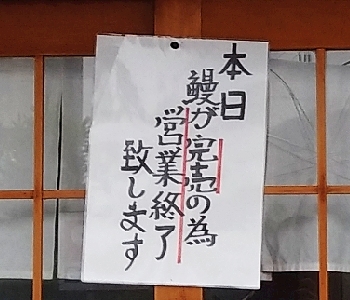 本日
鰻が完売の為
営業終了
致します